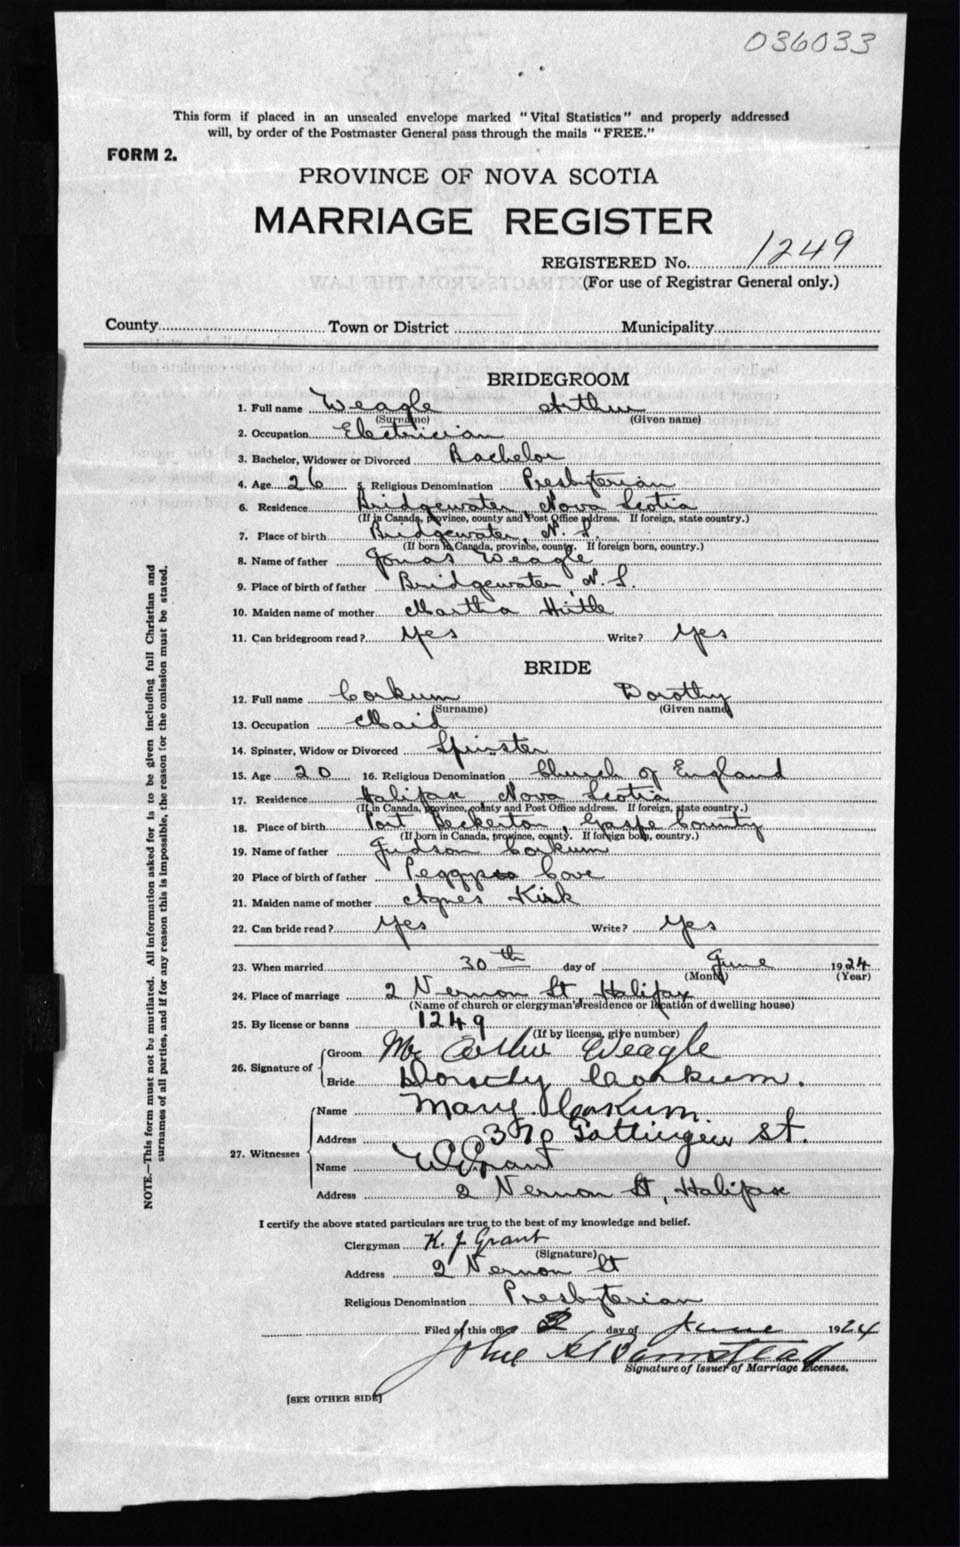 036033
This form if placed in an unsealed envelope marked "Vital Statistics" and properly addressed
will, by order of the Postmaster General pass through the mails "FREE."
FORM 2.
PROVINCE OF NOVA SCOTIA
MARRIAGE REGISTER
REGISTERED No. 1249
(For use of Registrar General only.)
County Town or District Municipality
BRIDEGROOM
1. Full name Weagle Arthur
(Surname) (Given name)
2. Occupation Electrician
3. Bachelor, Widower or Divorced Bachelor
4. Age 26 5. Religious Denomination Presbyterian
6. Residence Bridgewater, Nova Scotia
(If in Canada, province, county and Post Office address. If foreign, state country.)
7. Place of birth Bridgewater, N. S.
(If born in Canada, province, county. If foreign born, country.)
8. Name of father Jonas Weagle
9. Place of birth of father Bridgewater, N. S.
10. Maiden name of mother Martha Hirtle
11. Can bridegroom read? Yes Write? Yes
BRIDE
12. Full name Corkum Dorothy
(Surname) (Given name)
13. Occupation Maid
14. Spinster, Widow or Divorced Spinster
15. Age 20 16. Religious Denomination Church of England
17. Residence Halifax Nova Scotia
(If in Canada, province, county and Post Office address. If foreign, state country.)
18. Place of birth Port Beckerton, Gaspe County
(If born in Canada, province, county. If foreign born, country.)
19. Name of father Judson Corkum
20 Place of birth of father Peggys Cove
21. Maiden name of mother Agnes Kirk
22. Can bride read? Yes Write? Yes
23. When married 30th day of June 1924
(Month) (Year)
24. Place of marriage 2 Vernon St, Halifax
(Name of church or clergyman's residence or location of dwelling house)
25. By license or banns 1249
(If by license, give number)
26. Signature of
Groom Mr Arthur Weagle
Bride Dorothy Corkum.
27. Witnesses
Name Mary Corkum
Address 370 Gottingen St.
Name Grant
Address 2 Vernon St, Halifax
I certify the above stated particulars are true to the best of my knowledge and belief.
Clergyman K. J Grant
(Signature)
Address 2 Vernon St
Religious Denomination Presbyterian
Filed at this office day of June 1924
John
Signature of Issuer of Marriage Licenses.
[SEE OTHER SIDE]
NOTE.—This form must not be mutilated. All information asked for is to be given including full Christian and
surnames of all parties, and if for any reason this is impossible, the reason for the omission must be stated.